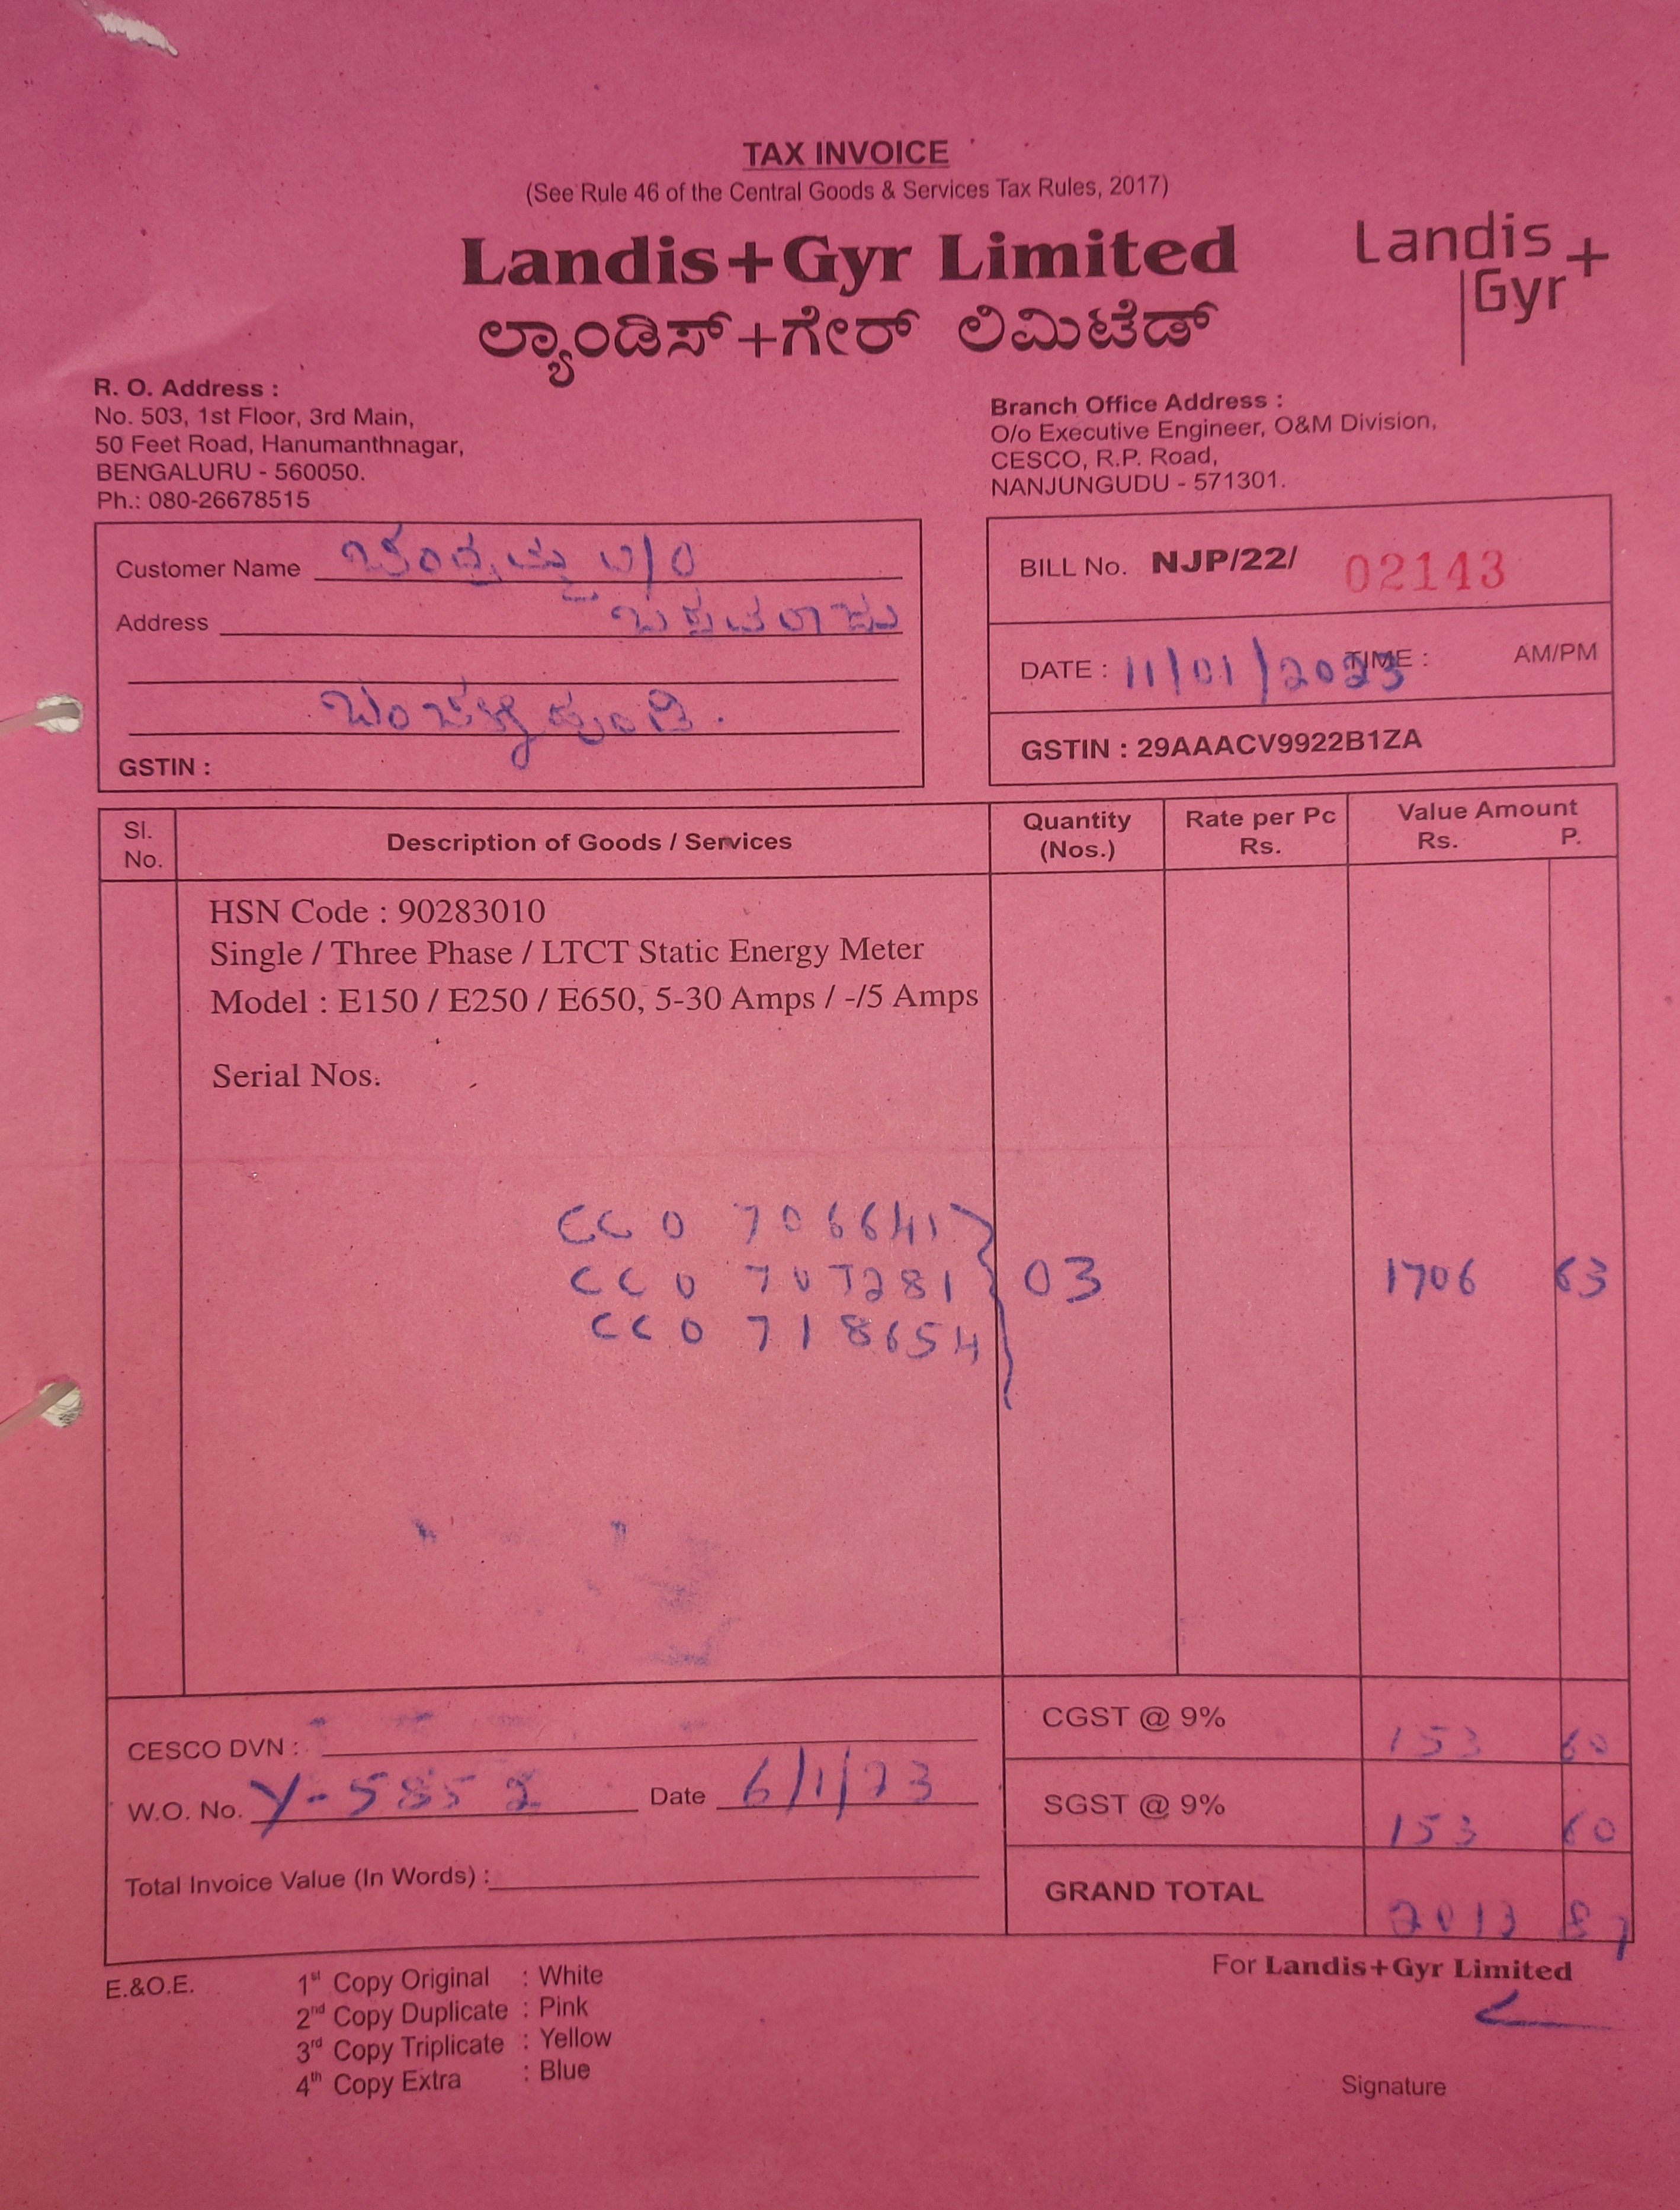 TAX INVOICE
(See Rule 46 of the Central Goods & Services Tax Rules, 2017)
Landis+Gyr Limited
ಲ್ಯಾಂಡಿಸ್+ಗೇರ್ ಲಿಮಿಟೆಡ್
Landis
Gyr+
R. O. Address :
No. 503, 1st Floor, 3rd Main,
50 Feet Road, Hanumanthnagar,
BENGALURU - 560050.
Ph.: 080-26678515
Branch Office Address :
O/o Executive Engineer, O&M Division,
CESCO, R.P. Road,
NANJUNGUDU - 571301.
Customer Name
Address
GSTIN :
BILL No. NJP/22/ 02143
DATE : 11/01/2023 TIME : AM/PM
GSTIN : 29AAACV9922B1ZA
Sl. No. Description of Goods / Services Quantity (Nos.) Rate per Pc Rs. Value Amount Rs. P.
HSN Code : 90283010
Single / Three Phase / LTCT Static Energy Meter
Model : E150 / E250 / E650, 5-30 Amps / -/5 Amps
Serial Nos.
CC 0 706641
CC 0 707281 03 1706 63
CC 0 718654
CGST @ 9% 153 60
CESCO DVN :
W.O. No. Y-5852 Date 6/1/23
SGST @ 9% 153 60
Total Invoice Value (In Words) :
GRAND TOTAL 2013 87
E.&O.E.
1st Copy Original : White
2nd Copy Duplicate : Pink
3rd Copy Triplicate : Yellow
4th Copy Extra : Blue
For Landis+Gyr Limited
Signature